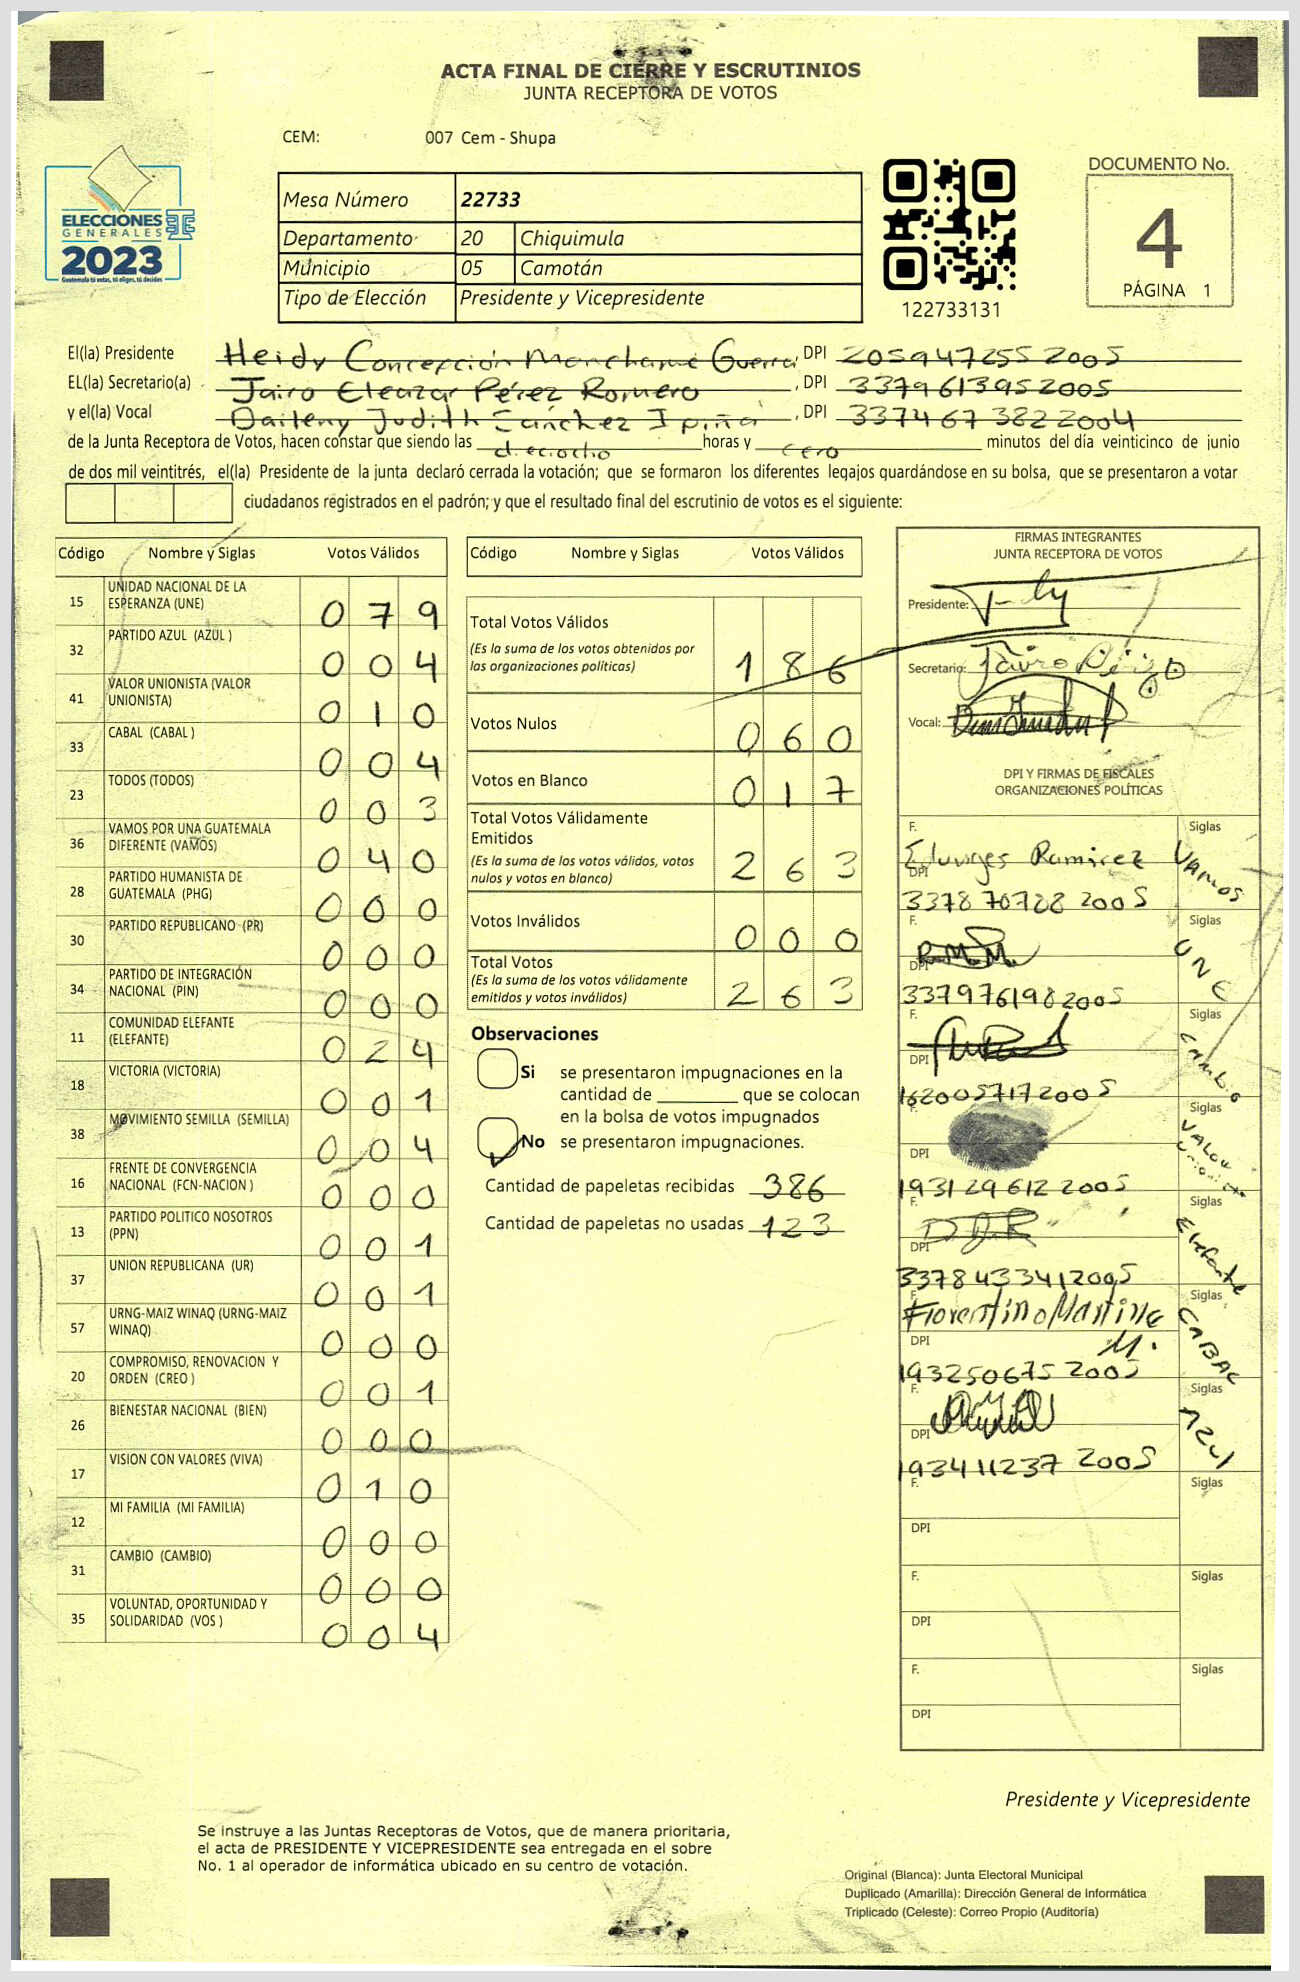 ACTA FINAL DE CIERRE Y ESCRUTINIOS
JUNTA RECEPTORA DE VOTOS
CEM: 007 Cem - Shupa
ELECCIONES
GENERALES
2023
Guatemala tú votas, tú eliges, tú decides
Mesa Número 22733
Departamento 20 Chiquimula
Municipio 05 Camotán
Tipo de Elección Presidente y Vicepresidente
122733131
DOCUMENTO No.
4
PÁGINA 1
El(la) Presidente Heidy Concepción Manchamé Guerra, DPI 205947255 2005
EL(la) Secretario(a) Jairo Eleazar Pérez Romero, DPI 3379613952005
y el(la) Vocal Judith Sánchez, DPI 337467382 2004
de la Junta Receptora de Votos, hacen constar que siendo las dieciocho horas y cero minutos del día veinticinco de junio
de dos mil veintitrés, el(la) Presidente de la junta declaró cerrada la votación; que se formaron los diferentes legajos quardándose en su bolsa, que se presentaron a votar
ciudadanos registrados en el padrón; y que el resultado final del escrutinio de votos es el siguiente:
Código Nombre y Siglas Votos Válidos
15 UNIDAD NACIONAL DE LA ESPERANZA (UNE) 0 7 9
32 PARTIDO AZUL (AZUL ) 0 0 4
41 VALOR UNIONISTA (VALOR UNIONISTA) 0 1 0
33 CABAL (CABAL ) 0 0 4
23 TODOS (TODOS) 0 0 3
36 VAMOS POR UNA GUATEMALA DIFERENTE (VAMOS) 0 4 0
28 PARTIDO HUMANISTA DE GUATEMALA (PHG) 0 0 0
30 PARTIDO REPUBLICANO (PR) 0 0 0
34 PARTIDO DE INTEGRACIÓN NACIONAL (PIN) 0 0 0
11 COMUNIDAD ELEFANTE (ELEFANTE) 0 2 4
18 VICTORIA (VICTORIA) 0 0 1
38 MOVIMIENTO SEMILLA (SEMILLA) 0 0 4
16 FRENTE DE CONVERGENCIA NACIONAL (FCN-NACION ) 0 0 0
13 PARTIDO POLITICO NOSOTROS (PPN) 0 0 1
37 UNION REPUBLICANA (UR) 0 0 1
57 URNG-MAIZ WINAQ (URNG-MAIZ WINAQ) 0 0 0
20 COMPROMISO, RENOVACION Y ORDEN (CREO ) 0 0 1
26 BIENESTAR NACIONAL (BIEN) 0 0 0
17 VISION CON VALORES (VIVA) 0 1 0
12 MI FAMILIA (MI FAMILIA) 0 0 0
31 CAMBIO (CAMBIO) 0 0 0
35 VOLUNTAD, OPORTUNIDAD Y SOLIDARIDAD (VOS ) 0 0 4
Código Nombre y Siglas Votos Válidos
Total Votos Válidos 1 8 6
(Es la suma de los votos obtenidos por
las organizaciones políticas)
Votos Nulos 0 6 0
Votos en Blanco 0 1 7
Total Votos Válidamente
Emitidos 2 6 3
(Es la suma de los votos válidos, votos
nulos y votos en blanco)
Votos Inválidos 0 0 0
Total Votos 2 6 3
(Es la suma de los votos válidamente
emitidos y votos inválidos)
Observaciones
Si se presentaron impugnaciones en la
cantidad de ________ que se colocan
en la bolsa de votos impugnados
No se presentaron impugnaciones.
Cantidad de papeletas recibidas 386
Cantidad de papeletas no usadas 123
FIRMAS INTEGRANTES
JUNTA RECEPTORA DE VOTOS
Presidente:
Secretario: Jairo Pérez
Vocal:
DPI Y FIRMAS DE FISCALES
ORGANIZACIONES POLÍTICAS
F. Eduviges Ramirez Siglas Vamos
DPI 3378 70728 2005
F. R.M.M. Siglas UNE
DPI 337976198 2005
F. Siglas Cambio
DPI 162005717 2005
F. Siglas Valor Unionista
DPI 193129612 2005
F. Siglas Elefante
DPI 3378433412005
F. Florentino Martinez M. Siglas CABAL
DPI 193250675 2005
F. Siglas Azul
DPI 193411237 2005
F. Siglas
DPI
F. Siglas
DPI
F. Siglas
DPI
Presidente y Vicepresidente
Se instruye a las Juntas Receptoras de Votos, que de manera prioritaria,
el acta de PRESIDENTE Y VICEPRESIDENTE sea entregada en el sobre
No. 1 al operador de informática ubicado en su centro de votación.
Original (Blanca): Junta Electoral Municipal
Duplicado (Amarilla): Dirección General de Informática
Triplicado (Celeste): Correo Propio (Auditoría)